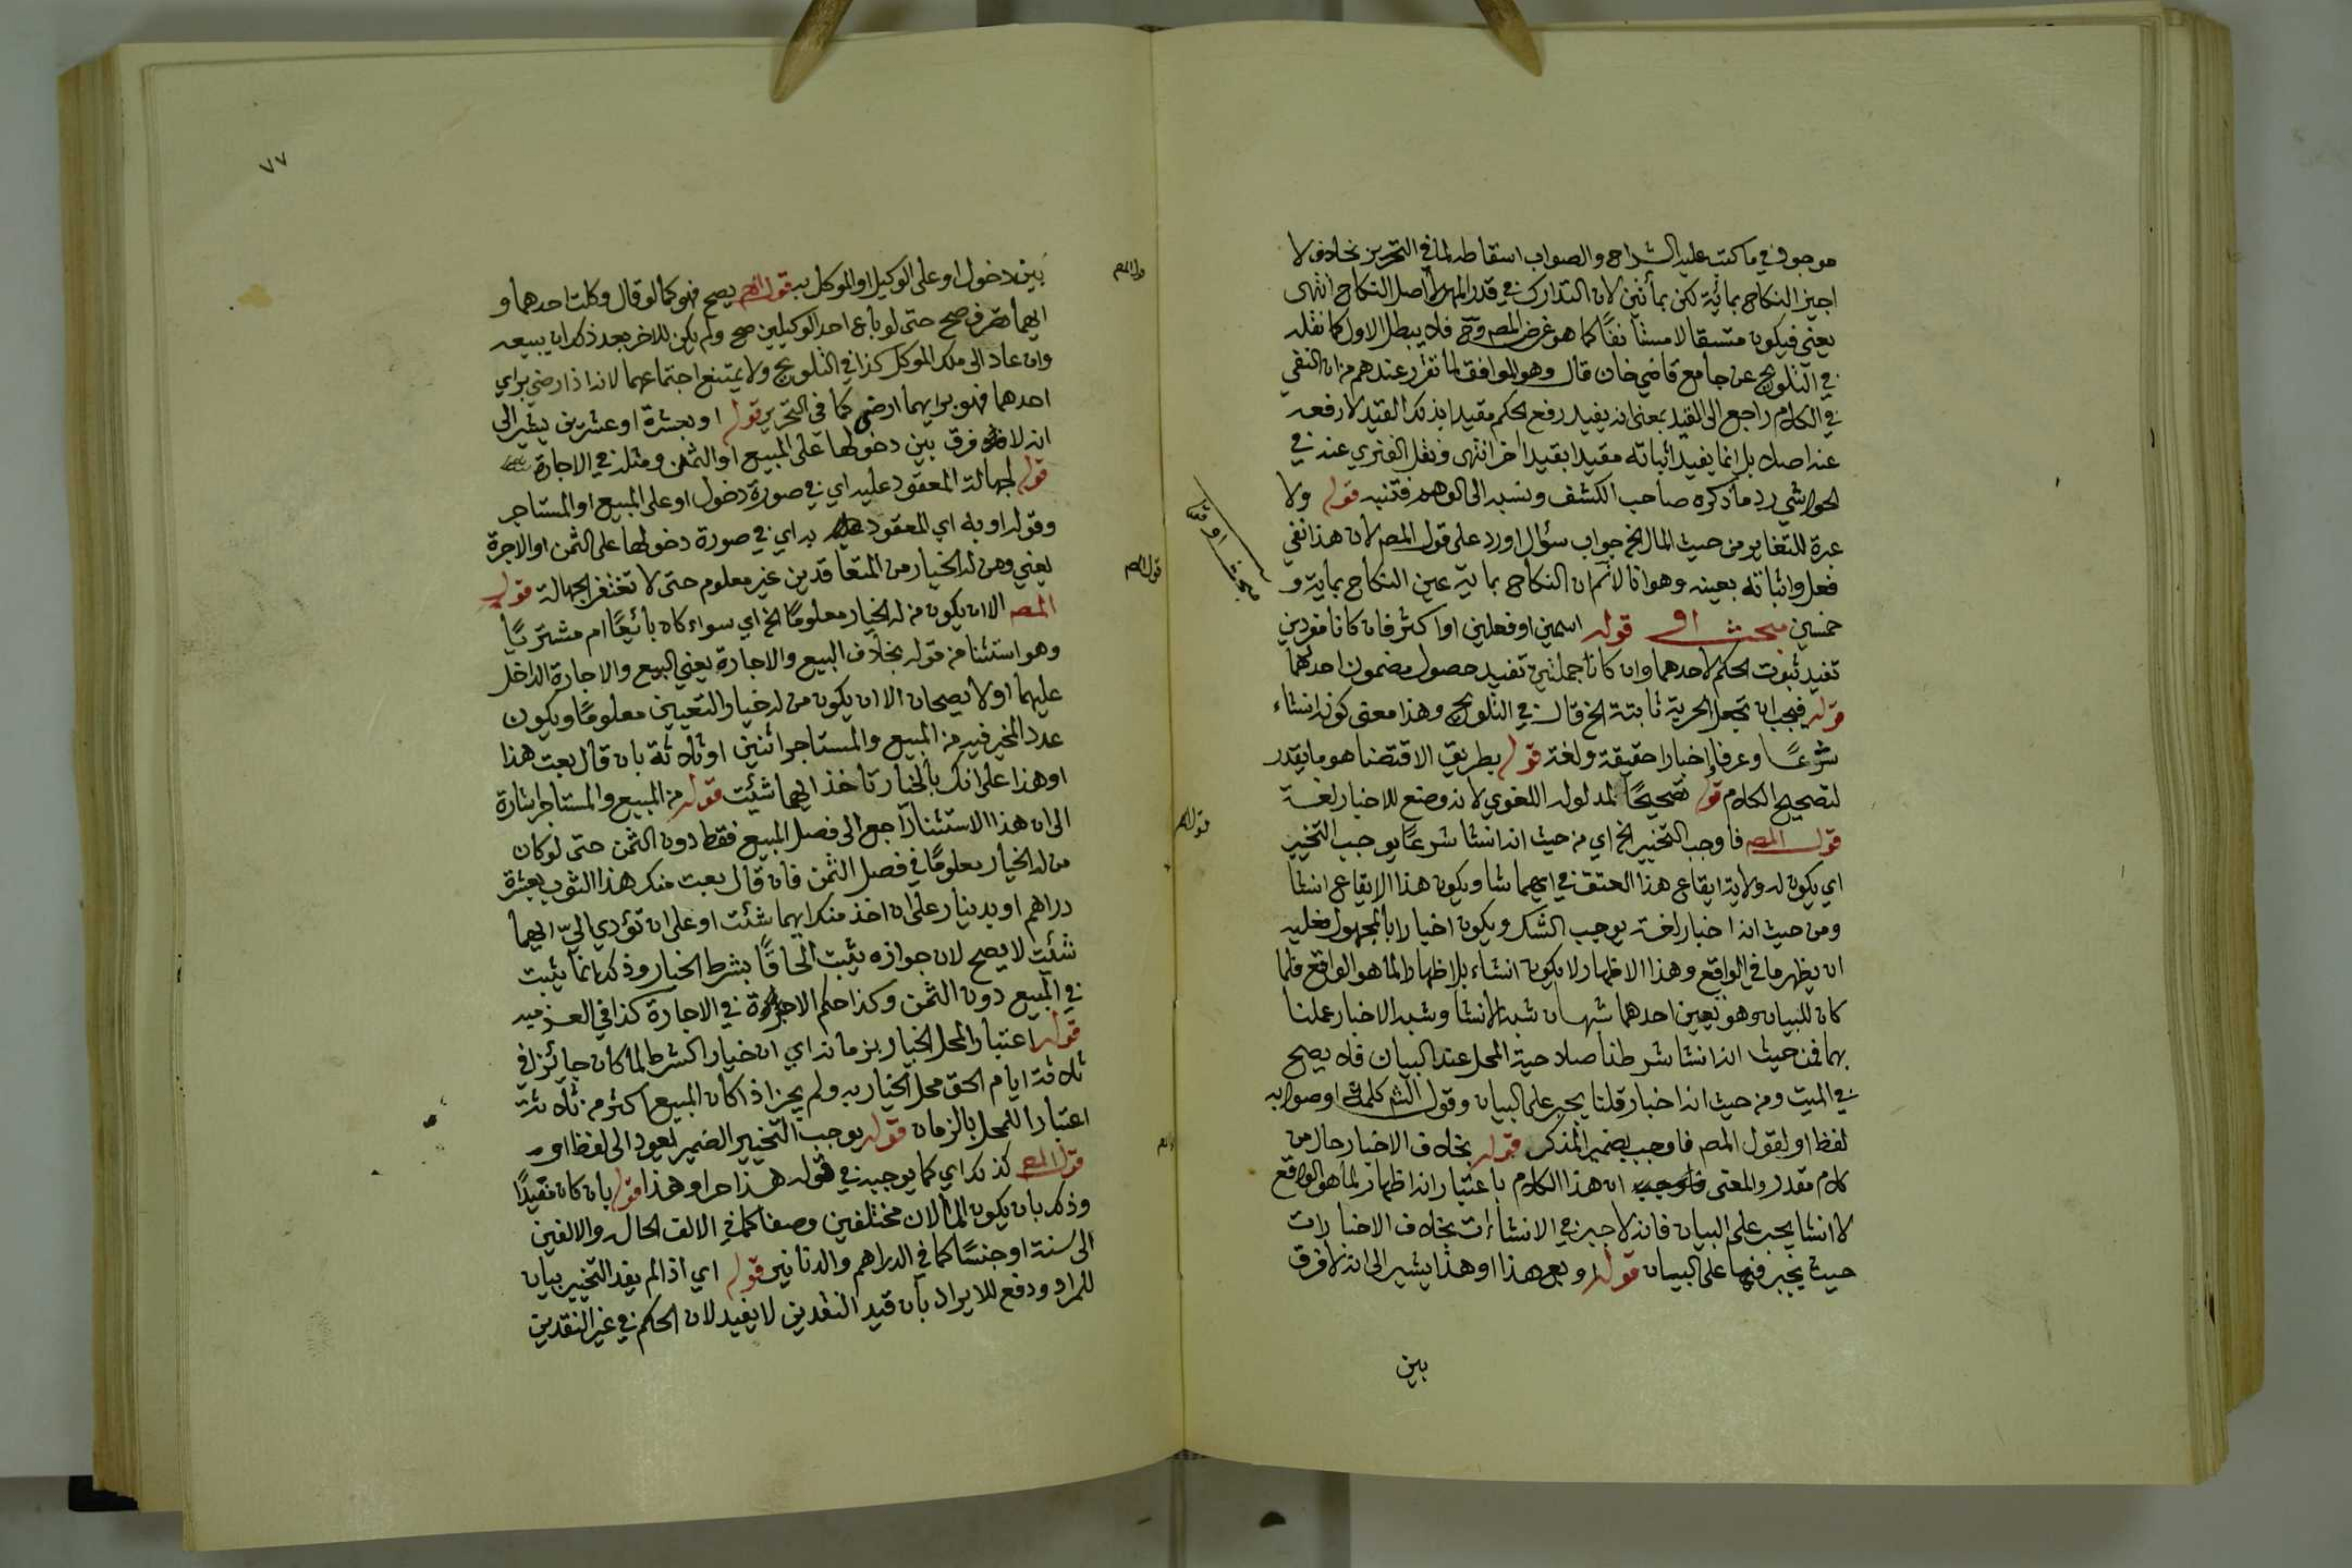 موجود في ما كتب عليه الشراح والصواب اسقاطه لما في التحرير بخلاف لا
اجيز النكاح بمائة لكن بمأتين لان التدارك في قدر المهر لا اصل النكاح انتهى
يعني فيكون متسقا لا مستأنفًا كما هو غرض المص وح فلا يبطل الاول كما نقله
في التلويح عن جامع قاضي خان قال وهو الموافق لما تقرر عندهم من ان النفي
في الكلام راجع الى القيد بمعنى انه يفيد رفع الحكم مقيدا بذلك القيد لا رفعه
عن اصله بل انما يفيد اثباته مقيدا بقيد اخر انتهى ونقل الفنري عنه في
الحواشي رد ما ذكره صاحب الكشف ونسبه الى الوهم فتنبه قوله ولا
عبرة للتغاير من حيث المال الخ جواب سؤال اورد على قول المص لان هذا نفي
فعل واثباته بعينه وهو انا لا نم ان النكاح بماية عين النكاح بماية و
خمسين مبحث او قوله اسمين او فعلين او اكثر فان كانا مفردين
تفيد ثبوت الحكم لاحدهما وان كانا جملتين تفيد حصول مضمون احدهما
قوله فيجب ان تجعل الحرية ثابتة الخ قال في التلويح وهذا معنى كونه انشاء
شرعًا وعرفا اخبارا حقيقة ولغة قوله بطريق الاقتضا هو ما يقدر
لتصحيح الكلام قوله تصحيحًا لمدلوله اللغوي لانه وضع للاخبار لغة
قول المص فاوجب التخيير الخ اي من حيث انه انشا شرعًا يوجب التخيير
اي يكون له ولاية ايقاع هذا العتق في ايهما شا ويكون هذا الايقاع انشا
ومن حيث انه اخبار لغة يوجب الشك ويكون اخبارا بالمجهول فعليه
ان يظهر ما في الواقع وهذا الاظهار لا يكون انشاء بل اظهارا لما هو الواقع فلما
كان للبيان وهو تعين احدهما شبهان شبه الانشا وشبه الاخبار عملنا
بهما فمن حيث انه انشا شرطنا صلاحية المحل عند البيان فلا يصح
في الميت ومن حيث انه اخبار قلنا يجبر على البيان وقول الشم كلمة او صوابه
لفظ او لقول المص فاوجب بضمير المذكر قوله بخلاف الاخبار حال من
كلام مقدر والمعنى فاوجب ان هذا الكلام باعتبار انه اظهار لما هو الواقع
لا انشا يجبر على البيان فانه لا جبر في الانشاءات بخلاف الاخبارات
حيث يجبر فيها على البيان قوله وبع هذا او هذا يشير الى انه لا فرق
بين
مبحث او وقتا
قوله المص
٧٧
بين دخول او على الوكيل او الموكل به قول المص يصح فهو كما لو قال وكلت احدهما و
ايهما تصرف صح حتى لو باع احد الوكيلين صح ولم يكن للاخر بعد ذلك ان يبيعه
وان عاد الى ملك الموكل كذا في التلويح ولا يمتنع اجتماعهما لانه اذا رضي براي
احدهما فهو برايهما ارضى كما في التحرير قوله او بعشرة او عشرين يشير الى
انه لا فرق بين دخولها على المبيع او الثمن ومثله في الاجارة
قوله لجهالة المعقود عليه اي في صورة دخول او على المبيع او المستاجر
وقوله او به اي المعقود به اي في صورة دخولها على الثمن او الاجرة
يعني ومن له الخيار من المتعاقدين غير معلوم حتى لا تغتفر الجهالة قول
المص الا ان يكون من له الخيار معلومًا الخ اي سواء كان بائعًا ام مشتريًا
وهو استثنا من قوله بخلاف البيع والاجارة يعني البيع والاجارة الداخل
عليهما او لا يصحان الا ان يكون من له خيار التعيين معلومًا ويكون
عدد المخير فيه من المبيع والمستاجر اثنين او ثلاثة بان قال بعت هذا
او هذا على انك بالخيار تاخذ ايهما شئت قوله من المبيع والمستاجر اشارة
الى ان هذا الاستثنا راجع الى فصل المبيع فقط دون الثمن حتى لو كان
من له الخيار معلومًا في فصل الثمن فان قال بعت منك هذا الثوب بعشرة
دراهم او بدينار على ان اخذ منك ايهما شئت او على ان تؤدي اليّ ايهما
شئت لا يصح لان جوازه يثبت الحاقًا بشرط الخيار وذلك انما يثبت
في المبيع دون الثمن وكذا حكم الاجرة في الاجارة كذا في العزميه
قوله اعتبار المحل الخيار بزمانه اي ان خيار الشرط لما كان جائزا في
ثلاثة ايام الحق محل الخيار به ولم يجز اذا كان المبيع اكثر من ثلاثة
اعتبارا للمحل بالزمان قوله يوجب التخيير الضمير يعود الى لفظ او
قول المص كذلك اي كما يوجبه في قوله هذا حر او هذا قوله بان كان مفيدًا
وذلك بان يكون المالان مختلفين وصفا كما في الالف الحال والالفين
الى سنة او جنسًا كما في الدراهم والدنانير قوله اي اذا لم يفد التخيير بيان
للمراد ودفع للايراد بان قيد النقدين لا يفيد لان الحكم في غير النقدين
قول المص